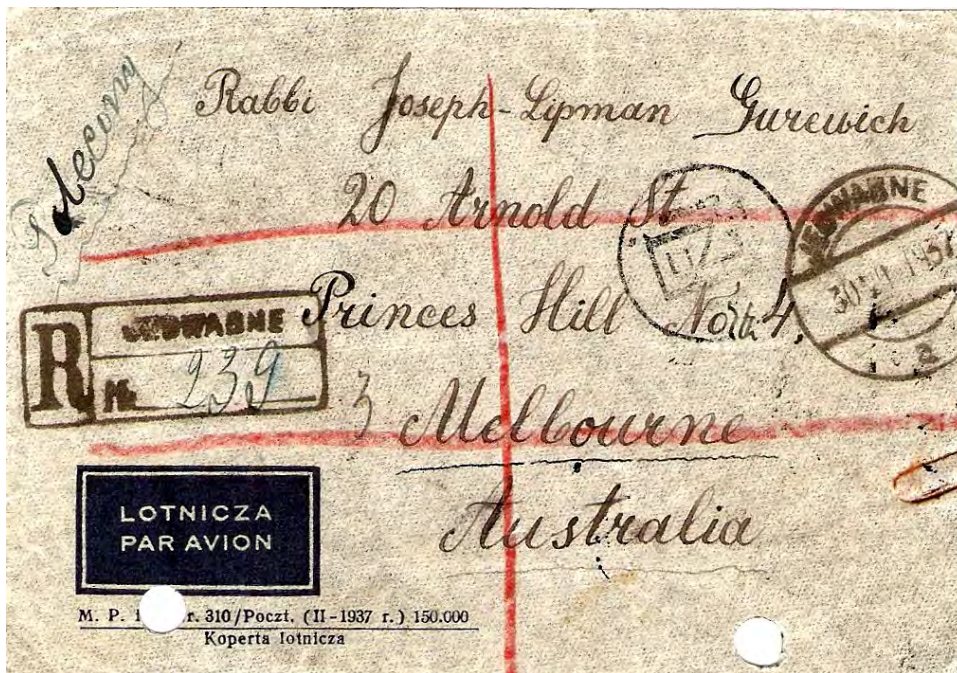 Polecony
Rabbi Joseph-Lipman Gurewich
20 Arnold St
Princes Hill N 4,
3 Melbourne
Australia
JEDWABNE
1937
a
R
JEDWABNE
№ 239
LOTNICZA
PAR AVION
M. P. i r. 310/Poczt. (II-1937 r.) 150.000
Koperta lotnicza